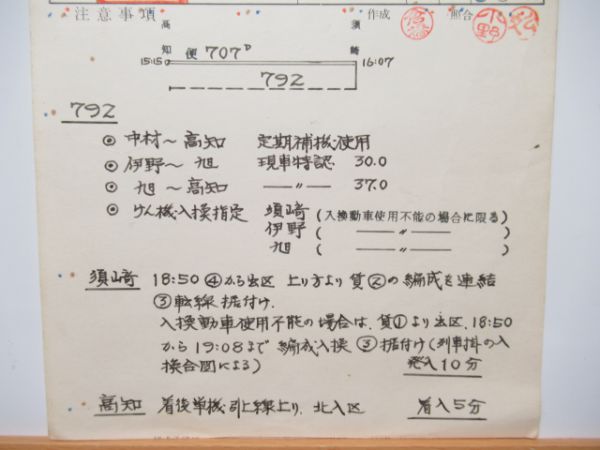 注意事項
作成
照合
高知
便 707D
須崎
15:15
16:07
792
792
◎ 中村〜高知 定期補機使用
◎ 伊野〜旭 現車特認 30.0
◎ 旭〜高知 —〃— 37.0
◎ けん機入換指定 須崎 (入換動車使用不能の場合に限る)
伊野 ( —〃— )
旭 ( —〃— )
須崎 18:50 ④から出区 上り方より貨②の編成を連結
③転線据付け.
入換動車使用不能の場合は、貨①より出区、18:50
から19:08まで編成入換 ③据付け(列車掛の入
換合図による) 発入10分
高知 着後単機引上線上り、北入区 着入5分